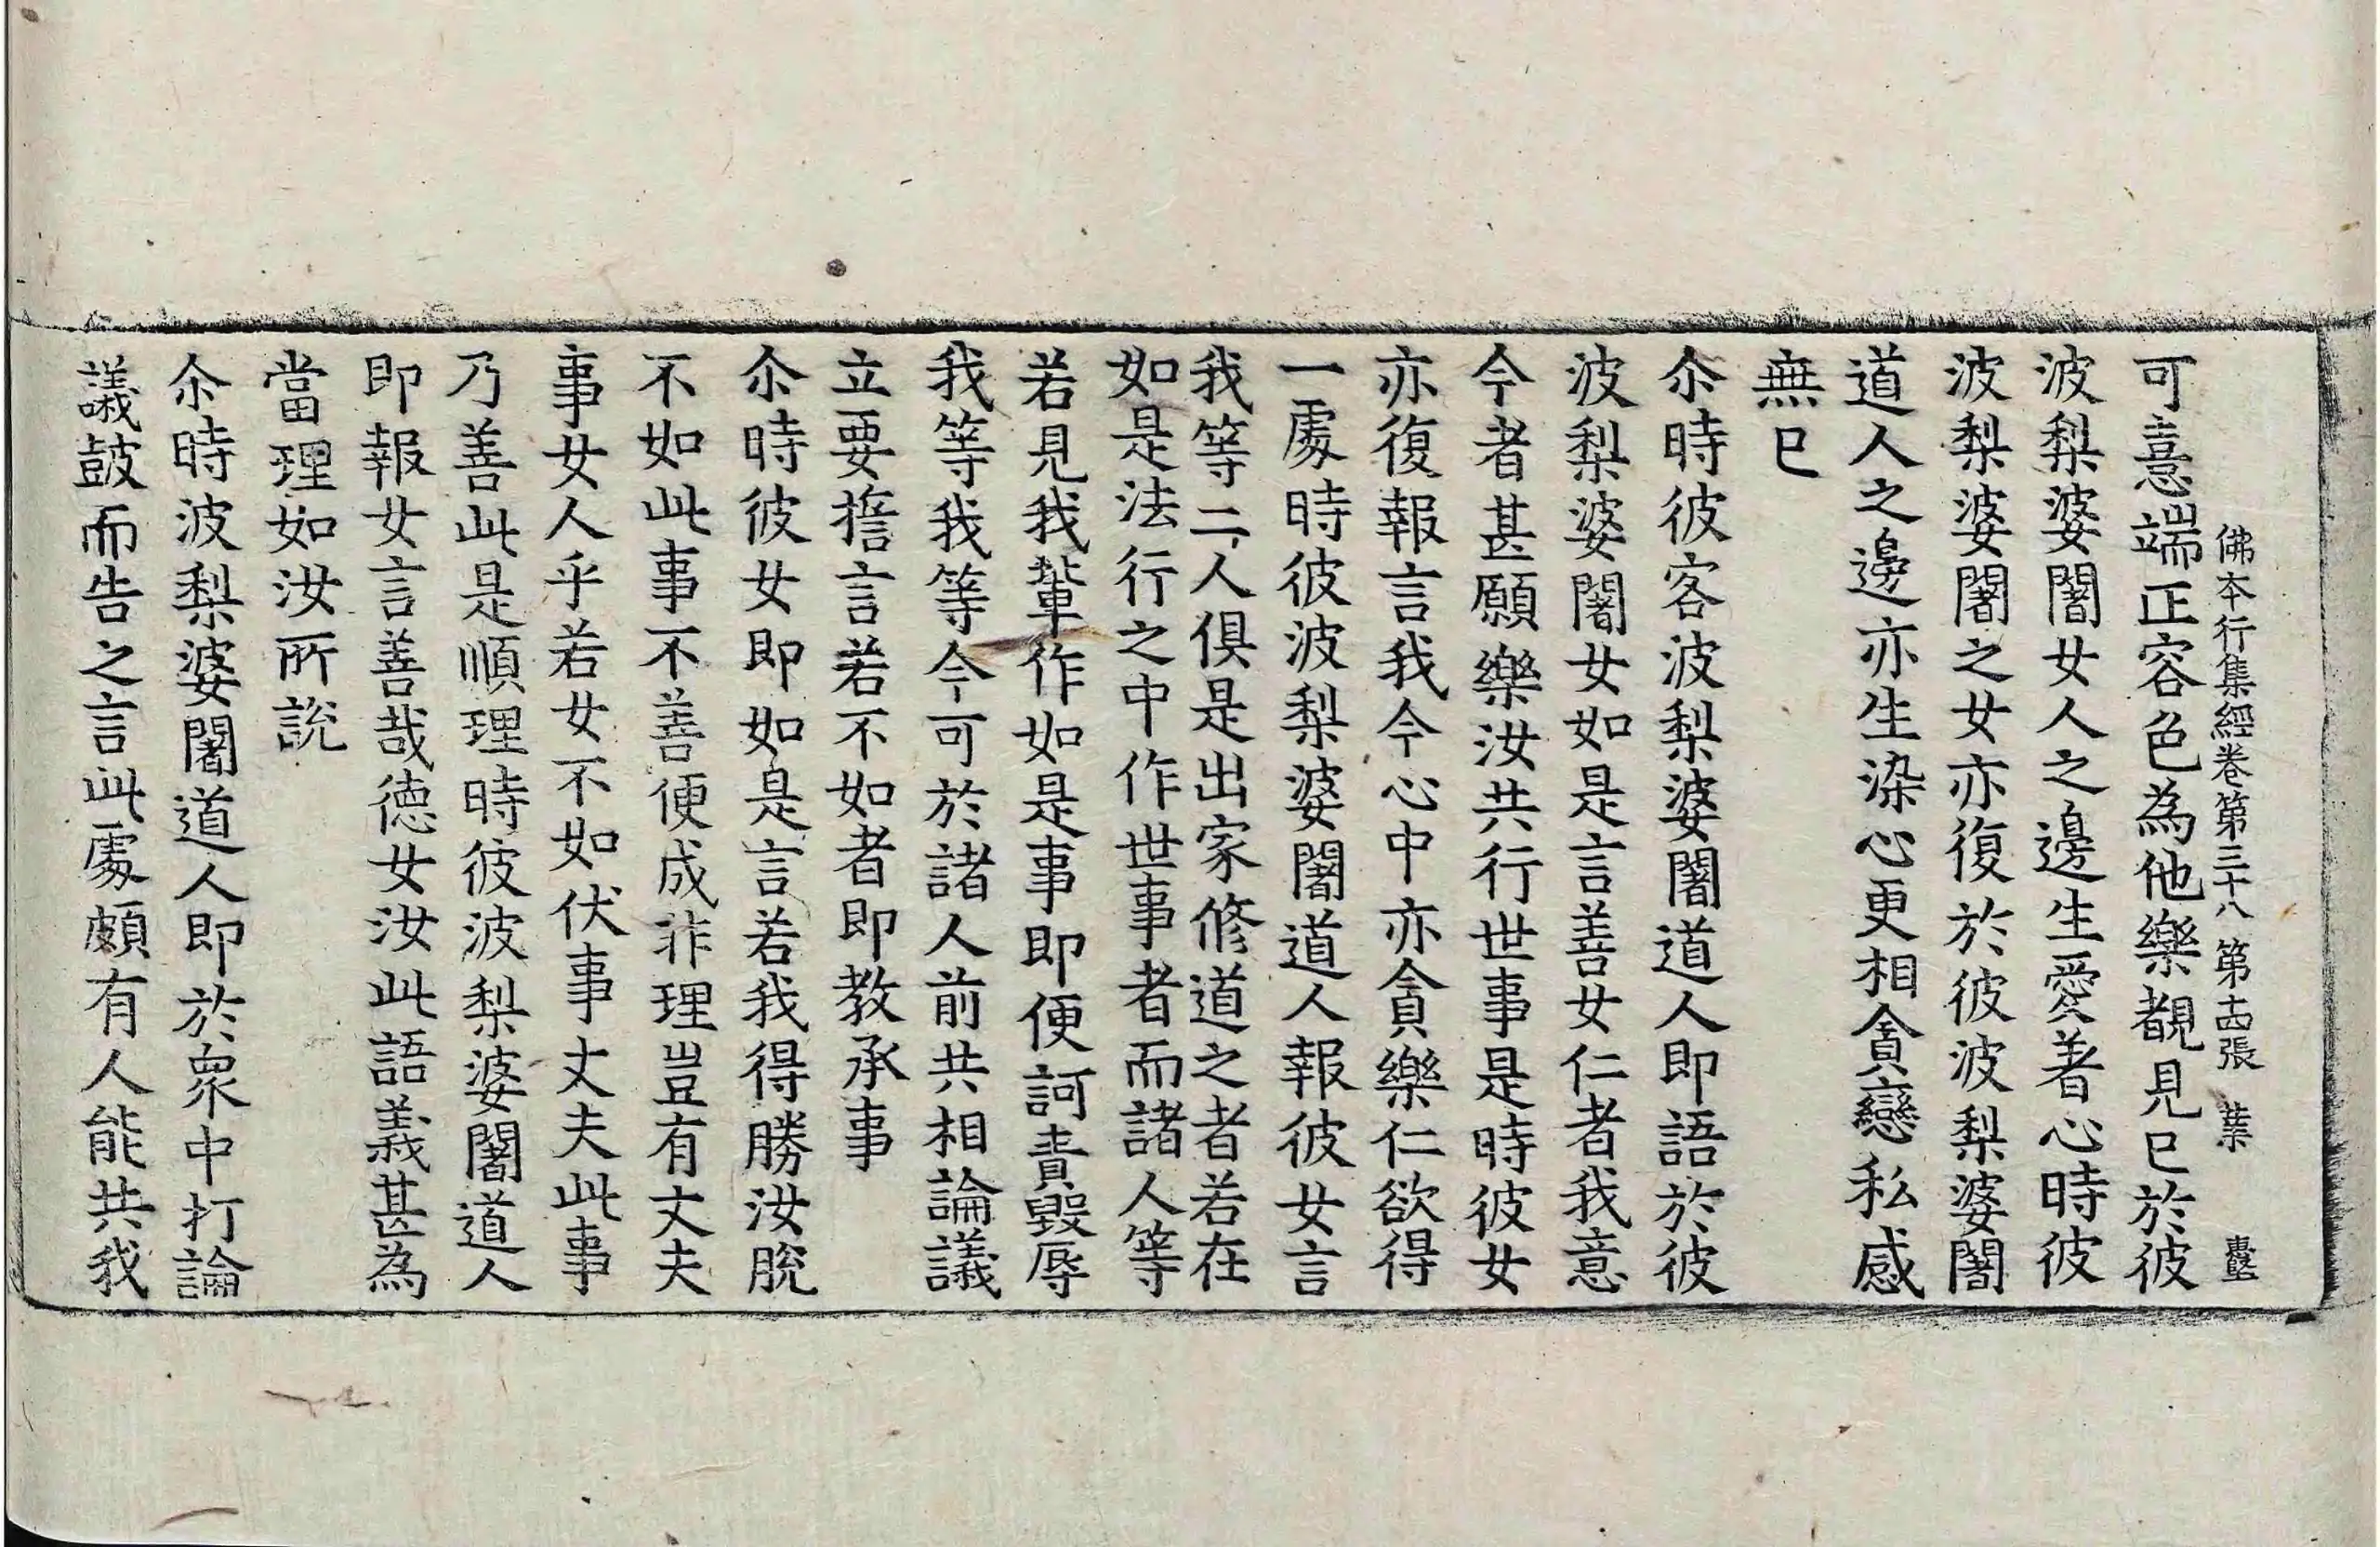 佛本行集經卷第三十八 第十四張 業
可憙端正容色為他樂覩見已於彼
波梨婆闍女人之邊生愛著心時彼
波梨婆闍之女亦復於彼波梨婆闍
道人之邊亦生染心更相貪戀私感
無已
尒時彼客波梨婆闍道人即語於彼
波梨婆闍女如是言善女仁者我意
今者甚願樂汝共行世事是時彼女
亦復報言我今心中亦貪樂仁欲得
一處時彼波梨婆闍道人報彼女言
我等二人俱是出家修道之者若在
如是法行之中作世事者而諸人等
若見我輩作如是事即便訶責毀辱
我等我等今可於諸人前共相論議
立要擔言若不如者即教承事
尒時彼女即如是言若我得勝汝脫
不如此事不善便成非理豈有丈夫
事女人乎若女不如伏事丈夫此事
乃善此是順理時彼波梨婆闍道人
即報女言善哉德女汝此語義甚為
當理如汝所說
尒時波梨婆闍道人即於眾中打論
議鼓而告之言此處頗有人能共我